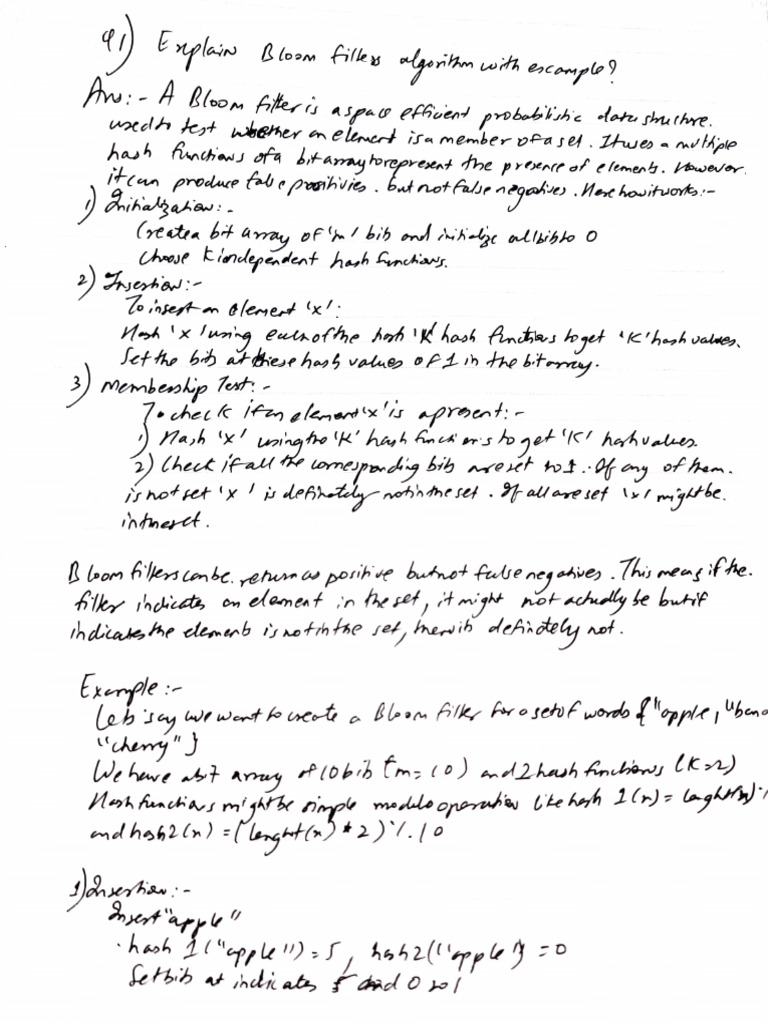 Q1) Explain Bloom filters algorithm with example?
Ans:- A Bloom filter is a space efficient probabilistic data structure.
used to test whether an element is a member of a set. It uses a multiple
hash functions of a bit array to represent the presence of elements. However
it can produce false positivies. but not false negatives. Here how it works:-
1) Initialization:-
Create a bit array of 'm' bits and initialize all bits to 0
Choose K independent hash functions.
2) Insertion:-
To insert an element 'x':
Hash 'x' using each of the hash 'K' hash functions to get 'K' hash values.
Set the bits at these hash values of 1 in the bit array.
3) Membership Test:-
To check if an element 'x' is a present:-
1) Hash 'x' using the 'K' hash functions to get 'K' hash values.
2) Check if all the corresponding bits are set to 1. If any of them.
is not set 'x' is definately not in the set. If all are set 'x' might be.
in the set.
Bloom filters can be. return as positive but not false negatives. This means if the.
filter indicates an element in the set, it might not actually be but if
indicates the elements is not in the set, then it definately not.
Example:-
Lets say we want to create a Bloom filter for a set of words {"apple, "bana
"cherry"}
We have a bit array of 10 bits (m=10) and 2 hash functions (K=2)
Hash functions might be simple modulo operation like hash 1(x) = lenght(x) %
and hash2(x) = (lenght(x) * 2) % 10
1) Insertion:-
Insert "apple"
· hash 1("apple") = 5, hash2("apple") = 0
Set bits at indicates 5 and 0 to 1